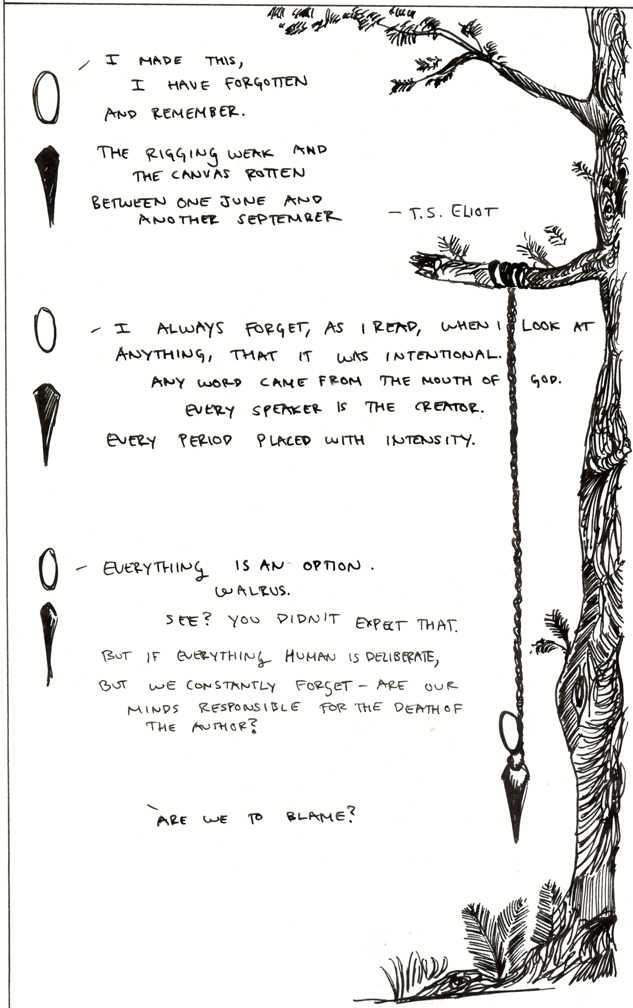 I MADE THIS,
I HAVE FORGOTTEN
AND REMEMBER.
THE RIGGING WEAK AND
THE CANVAS ROTTEN
BETWEEN ONE JUNE AND
ANOTHER SEPTEMBER
— T.S. ELIOT
I ALWAYS FORGET, AS I READ, WHEN I LOOK AT
ANYTHING, THAT IT WAS INTENTIONAL.
ANY WORD CAME FROM THE MOUTH OF GOD.
EVERY SPEAKER IS THE CREATOR.
EVERY PERIOD PLACED WITH INTENSITY.
EVERYTHING IS AN OPTION.
WALRUS.
SEE? YOU DIDN'T EXPECT THAT.
BUT IF EVERYTHING HUMAN IS DELIBERATE,
BUT WE CONSTANTLY FORGET – ARE OUR
MINDS RESPONSIBLE FOR THE DEATH OF
THE AUTHOR?
ARE WE TO BLAME?